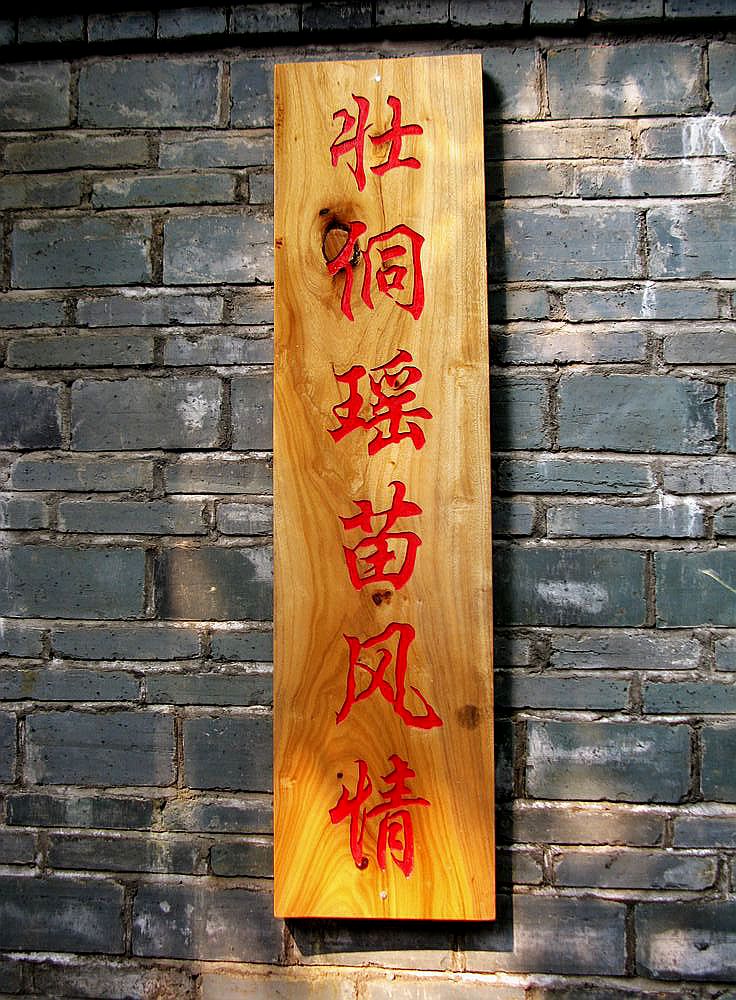 壮侗瑶苗风情